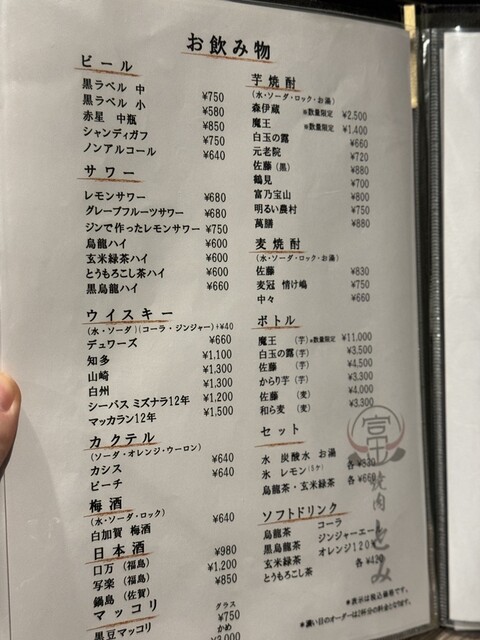 お飲み物
ビール
黒ラベル 中 ¥750
黒ラベル 小 ¥580
赤星 中瓶 ¥850
シャンディガフ ¥750
ノンアルコール ¥640
サワー
レモンサワー ¥680
グレープフルーツサワー ¥680
ジンで作ったレモンサワー ¥750
烏龍ハイ ¥600
玄米緑茶ハイ ¥600
とうもろこし茶ハイ ¥600
黒烏龍ハイ ¥660
ウイスキー
(水・ソーダ)(コーラ・ジンジャー)+¥40
デュワーズ ¥660
知多 ¥1,100
山崎 ¥1,300
白州 ¥1,300
シーバス ミズナラ12年 ¥1,200
マッカラン12年 ¥1,500
カクテル
(ソーダ・オレンジ・ウーロン)
カシス ¥640
ピーチ ¥640
梅酒
(水・ソーダ・ロック)
白加賀 梅酒 ¥640
日本酒
口万 (福島) ¥980
写楽 (福島) ¥1,200
鍋島 (佐賀) ¥850
マッコリ
グラス
黒豆マッコリ ¥750
かめ
芋焼酎
(水・ソーダ・ロック・お湯)
森伊蔵 ※数量限定 ¥2,500
魔王 ※数量限定 ¥1,400
白玉の露 ¥660
元老院 ¥720
佐藤 (黒) ¥880
鶴見 ¥700
富乃宝山 ¥800
明るい農村 ¥750
萬膳 ¥880
麦焼酎
(水・ソーダ・ロック・お湯)
佐藤 ¥830
麦冠 情け嶋 ¥750
中々 ¥660
ボトル
魔王 (芋) ※数量限定 ¥11,000
白玉の露 (芋) ¥3,500
佐藤 (芋) ¥4,500
からり芋 (芋) ¥3,300
佐藤 (麦) ¥4,000
和ら麦 (麦) ¥3,300
セット
水 炭酸水 お湯
氷 レモン(5ケ) 各¥330
烏龍茶・玄米緑茶 各¥660
ソフトドリンク
烏龍茶 コーラ
黒烏龍茶 ジンジャーエール
玄米緑茶 オレンジ120%
とうもろこし茶 各¥420
※表示は税込価格です。
※濃い目のオーダーは2杯分の料金となります。
焼肉